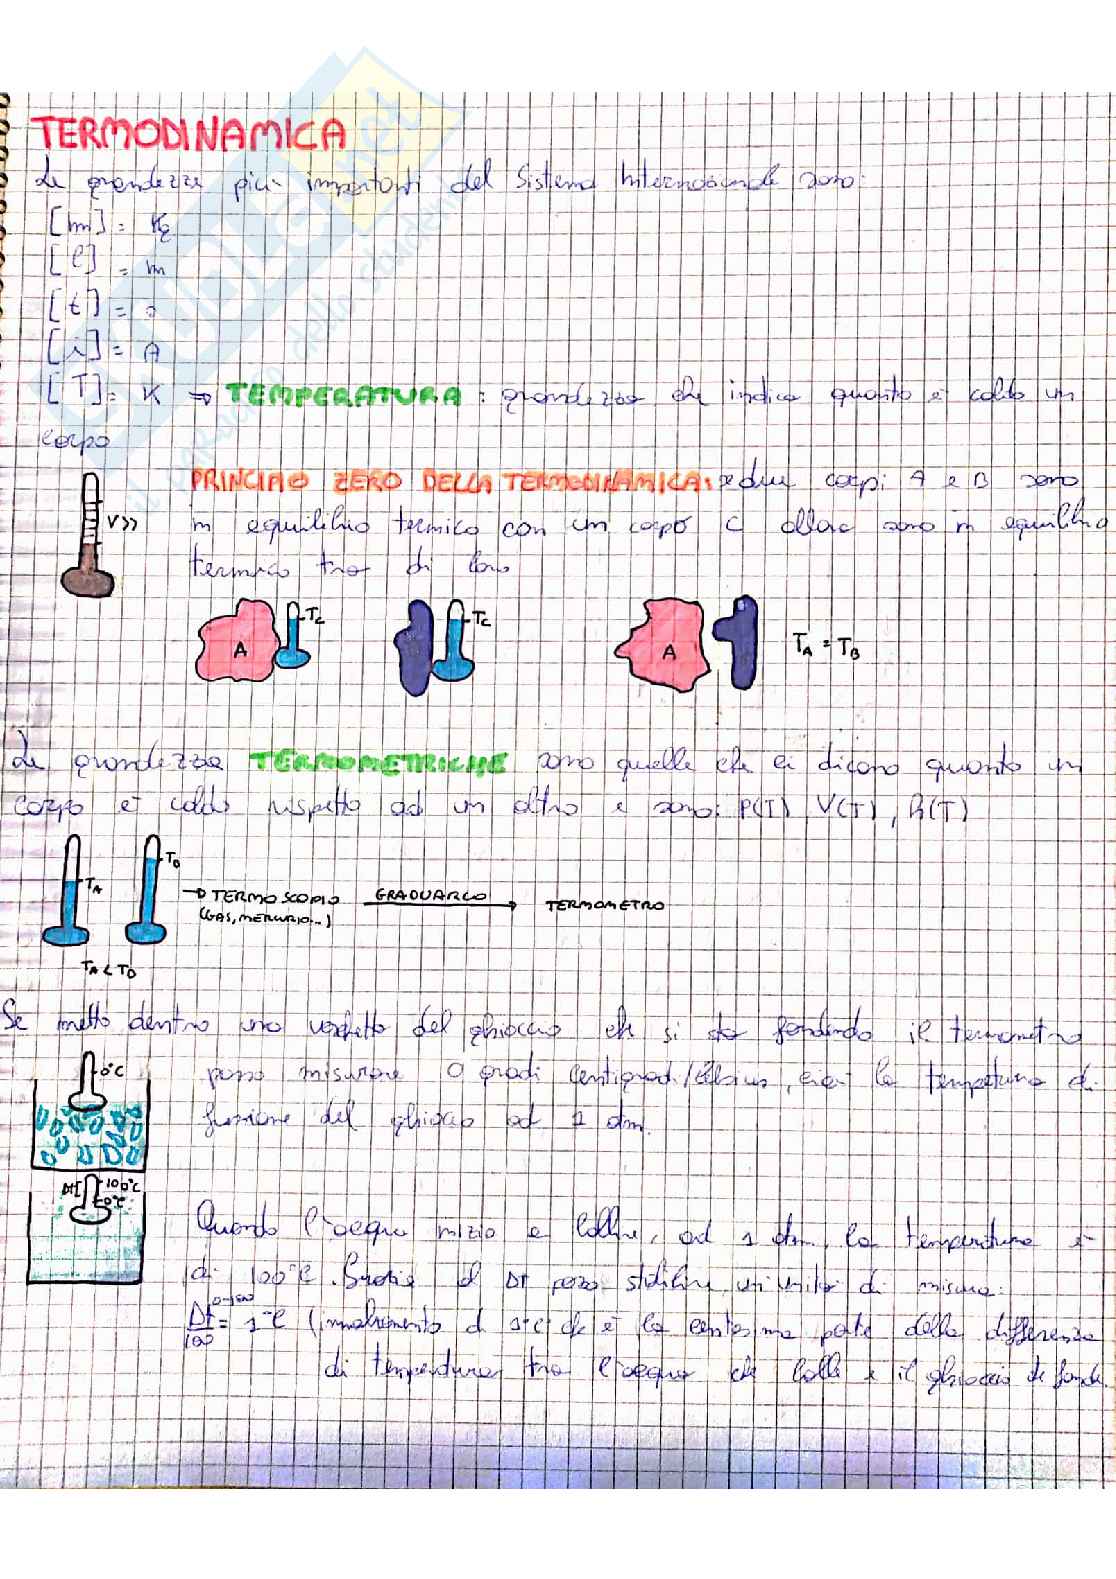 TERMODINAMICA
Le grandezze più importanti del Sistema Internazionale sono:
[m] = Kg
[l] = m
[t] = s
[i] = A
[T] = K ⇒ TEMPERATURA: grandezza che indica quanto è caldo un
corpo
PRINCIPIO ZERO DELLA TERMODINAMICA: se due corpi A e B sono
in equilibrio termico con un corpo C allora sono in equilibrio
termico tra di loro
V>>
A
Tc
Tc
A
TA = TB
Le grandezze TERMOMETRICHE sono quelle che ci dicono quanto un
corpo è caldo rispetto ad un altro e sono: P(T), V(T), R(T)
TA
TB
→ TERMOSCOPIO GRADUARLO → TERMOMETRO
(GAS, MERCURIO...)
TA < TB
Se metto dentro una vaschetta del ghiaccio che si sta fondendo il termometro
0°C
posso misurare 0 gradi centigradi/Celsius, cioè la temperatura di
fusione del ghiaccio ad 1 atm.
Δt
100°C
0°C
Quando l'acqua inizia a bollire, ad 1 atm, la temperatura è
di 100°C. Grazie al ΔT posso stabilire un'unità di misura:
Δt 0-100 / 100 = 1°C (innalzamento di 1°C che è la centesima parte della differenza
di temperatura tra l'acqua che bolle e il ghiaccio che fonde.